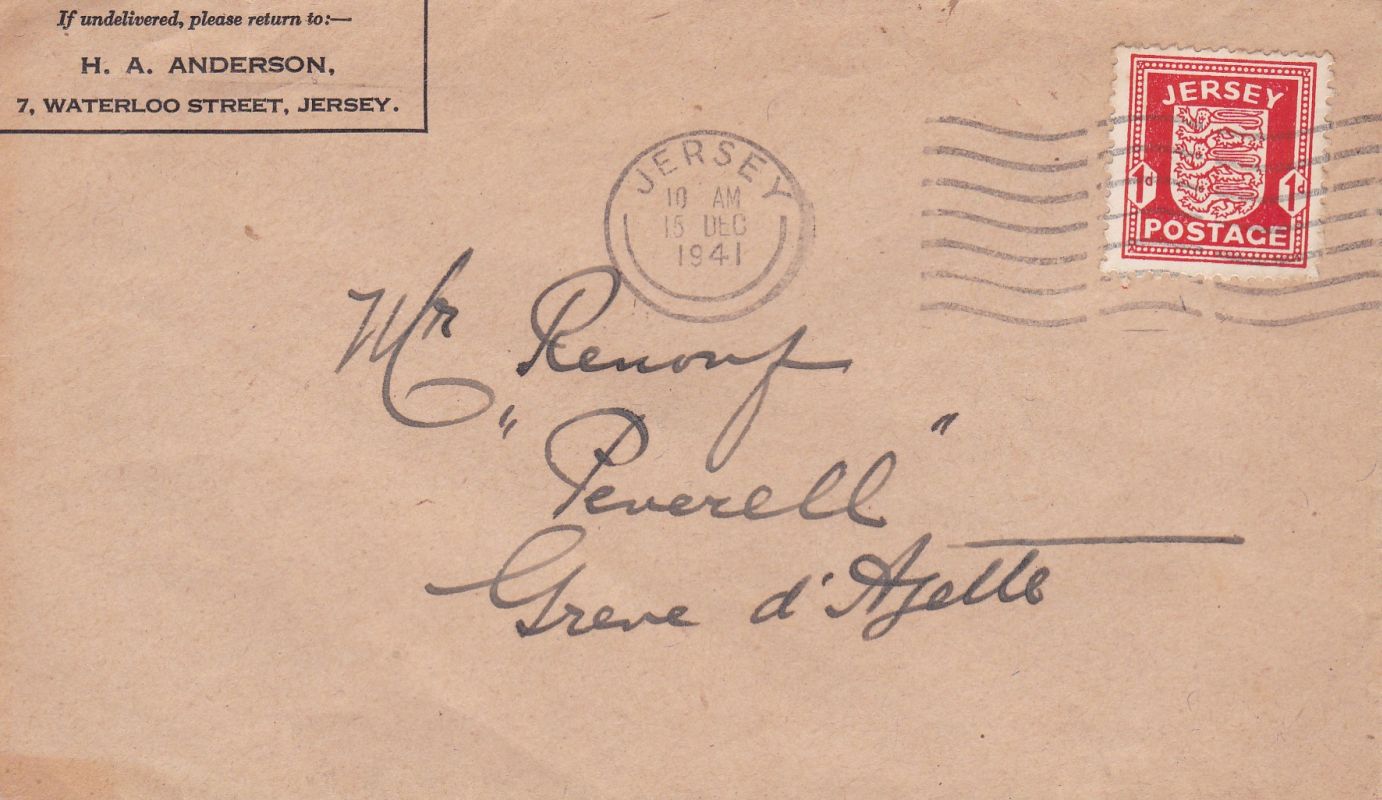 If undelivered, please return to:—
H. A. ANDERSON,
7, WATERLOO STREET, JERSEY.
JERSEY
10 AM
15 DEC
1941
JERSEY
1d 1d
POSTAGE
Mr Renouf
"Peverell"
Greve d'Azette